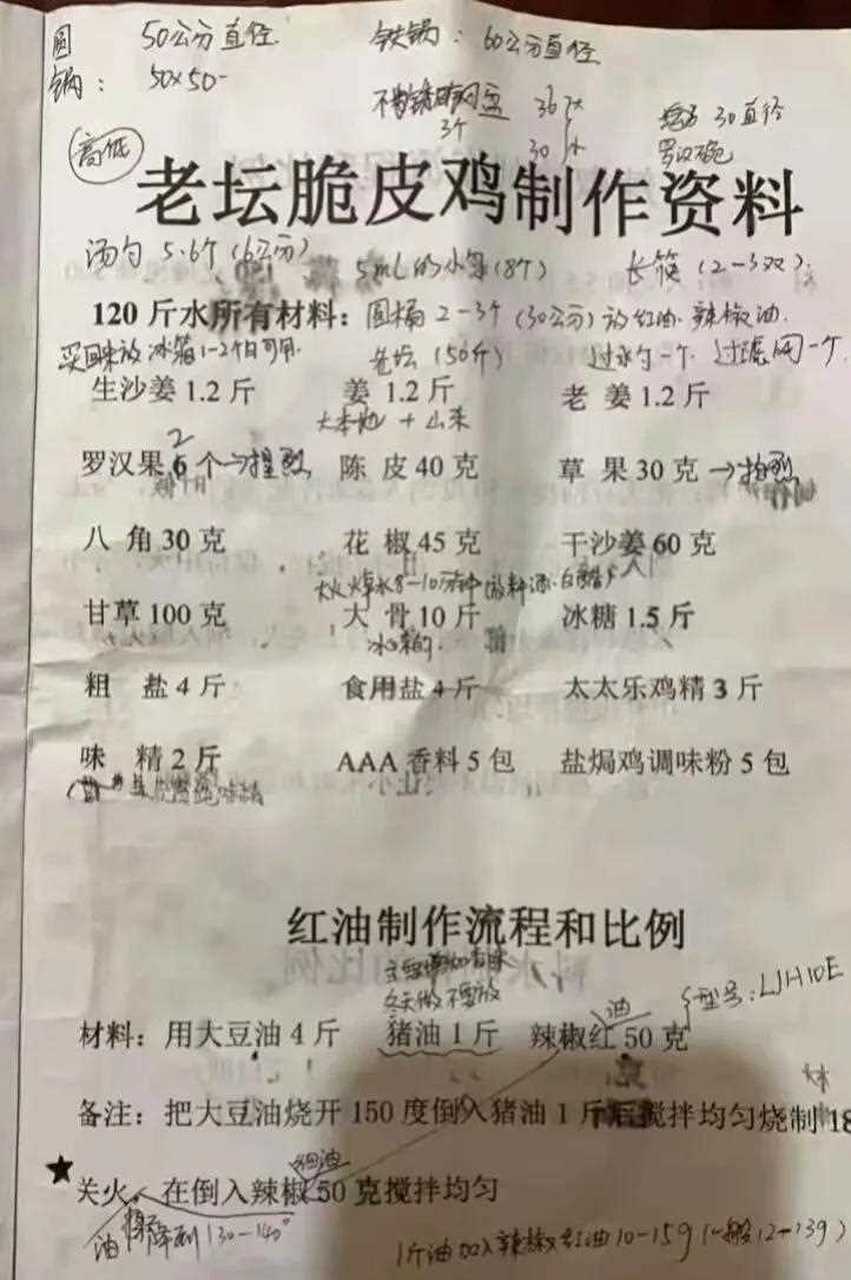 圆 50公分直径 铁锅：60公分直径
锅：50×50
3个 36
30 30直径
高低
老坛脆皮鸡制作资料
汤勺 5.6个（6公分） 5mL的小勺（8个） 长筷（2-3双）
120斤水所有材料：圆桶2-3个（30公分）放红油.辣椒油.
买回来放冰箱1-2个月可用. 老坛（150斤） 一个. 过滤网一个.
生沙姜1.2斤 姜 1.2斤 老 姜1.2斤
2
罗汉果6个 陈 皮40克 草 果30克→拍烈
八 角30克 花 椒45克 干沙姜60克
大火焯水8-10分钟放料酒.白醋
甘草100克 大 骨10斤 冰糖1.5斤
粗 盐4斤 食用盐4斤 太太乐鸡精3斤
味 精2斤 AAA香料5包 盐焗鸡调味粉5包
红油制作流程和比例
冬天做不要放
油 型号：
材料：用大豆油4斤 猪油1斤 辣椒红50克
备注：把大豆油烧开150度倒入猪油1斤后搅拌均匀烧制18
红油
★关火，在倒入辣椒50克搅拌均匀
油 降到130-140°
1斤油加入辣椒红油10-15g（一般12-13g）